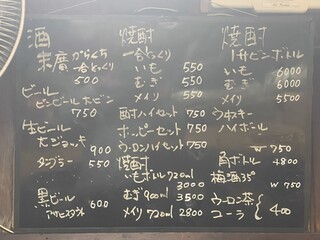 酒
末廣
一合とっくり
500
ビール
ビンビール 大ビン
750
生ビール
大ジョッキ
900
タンブラー 550
黒ビール
アサヒスタウト 600
焼酎
一合とっくり
いも 550
むぎ 550
メイリ 550
酎ハイセット 750
ホッピーセット 750
ウーロンハイセット 750
焼酎
いもボトル720ml
3000
むぎ 900ml 3500
メイリ 720ml 2800
焼酎
1升ビンボトル
いも 6000
むぎ 6000
メイリ 5500
ウヰスキー
ハイボール
W 750
角ボトル 4800
梅酒35°
W 750
ウーロン茶
コーラ
400